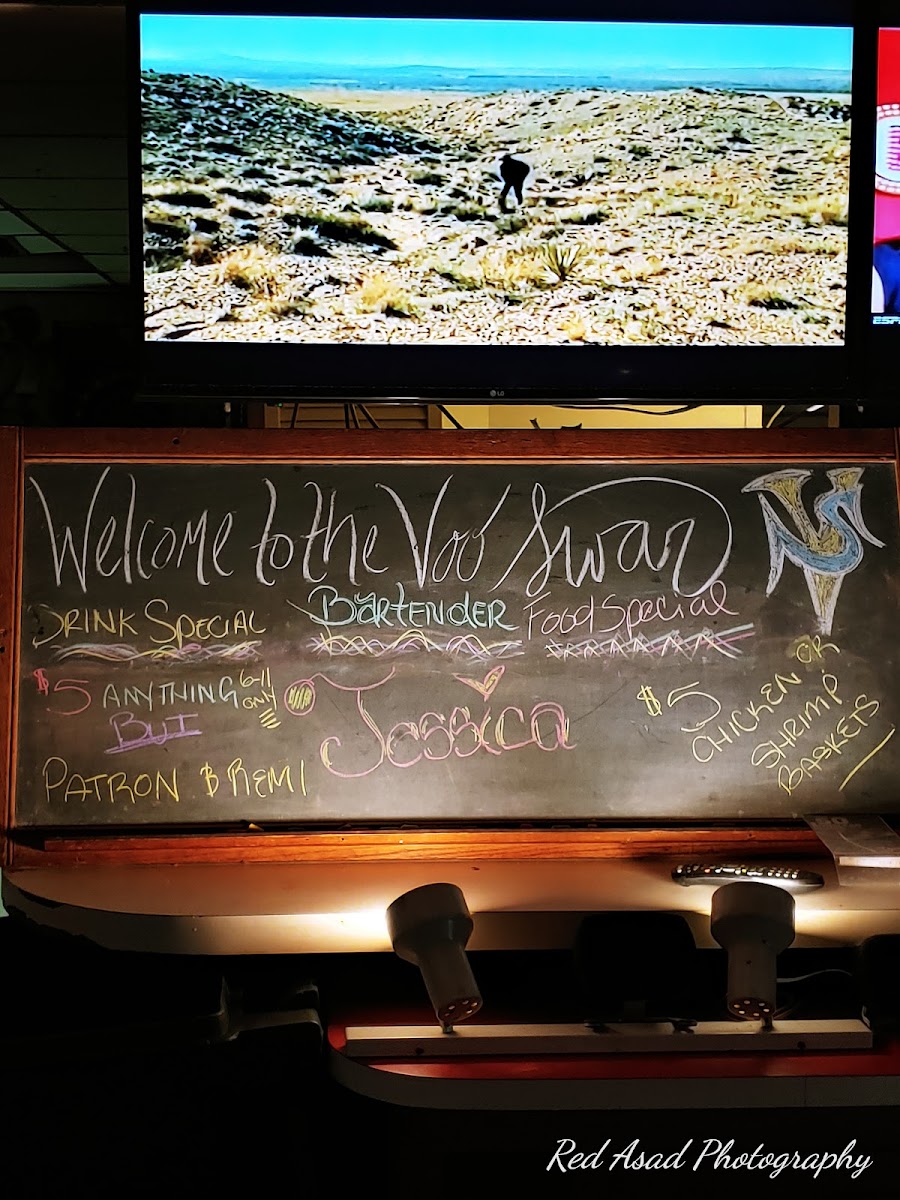 LG
ESP
Welcome to the Voo Swar
VS
DRINK SPECIAL
Bartender
Food Special
$5 ANYTHING
6-11
ONLY
BUT
PATRON & REMI
Jessica
$5
CHICKEN OR
SHRIMP
BASKETS
Red Asad Photography